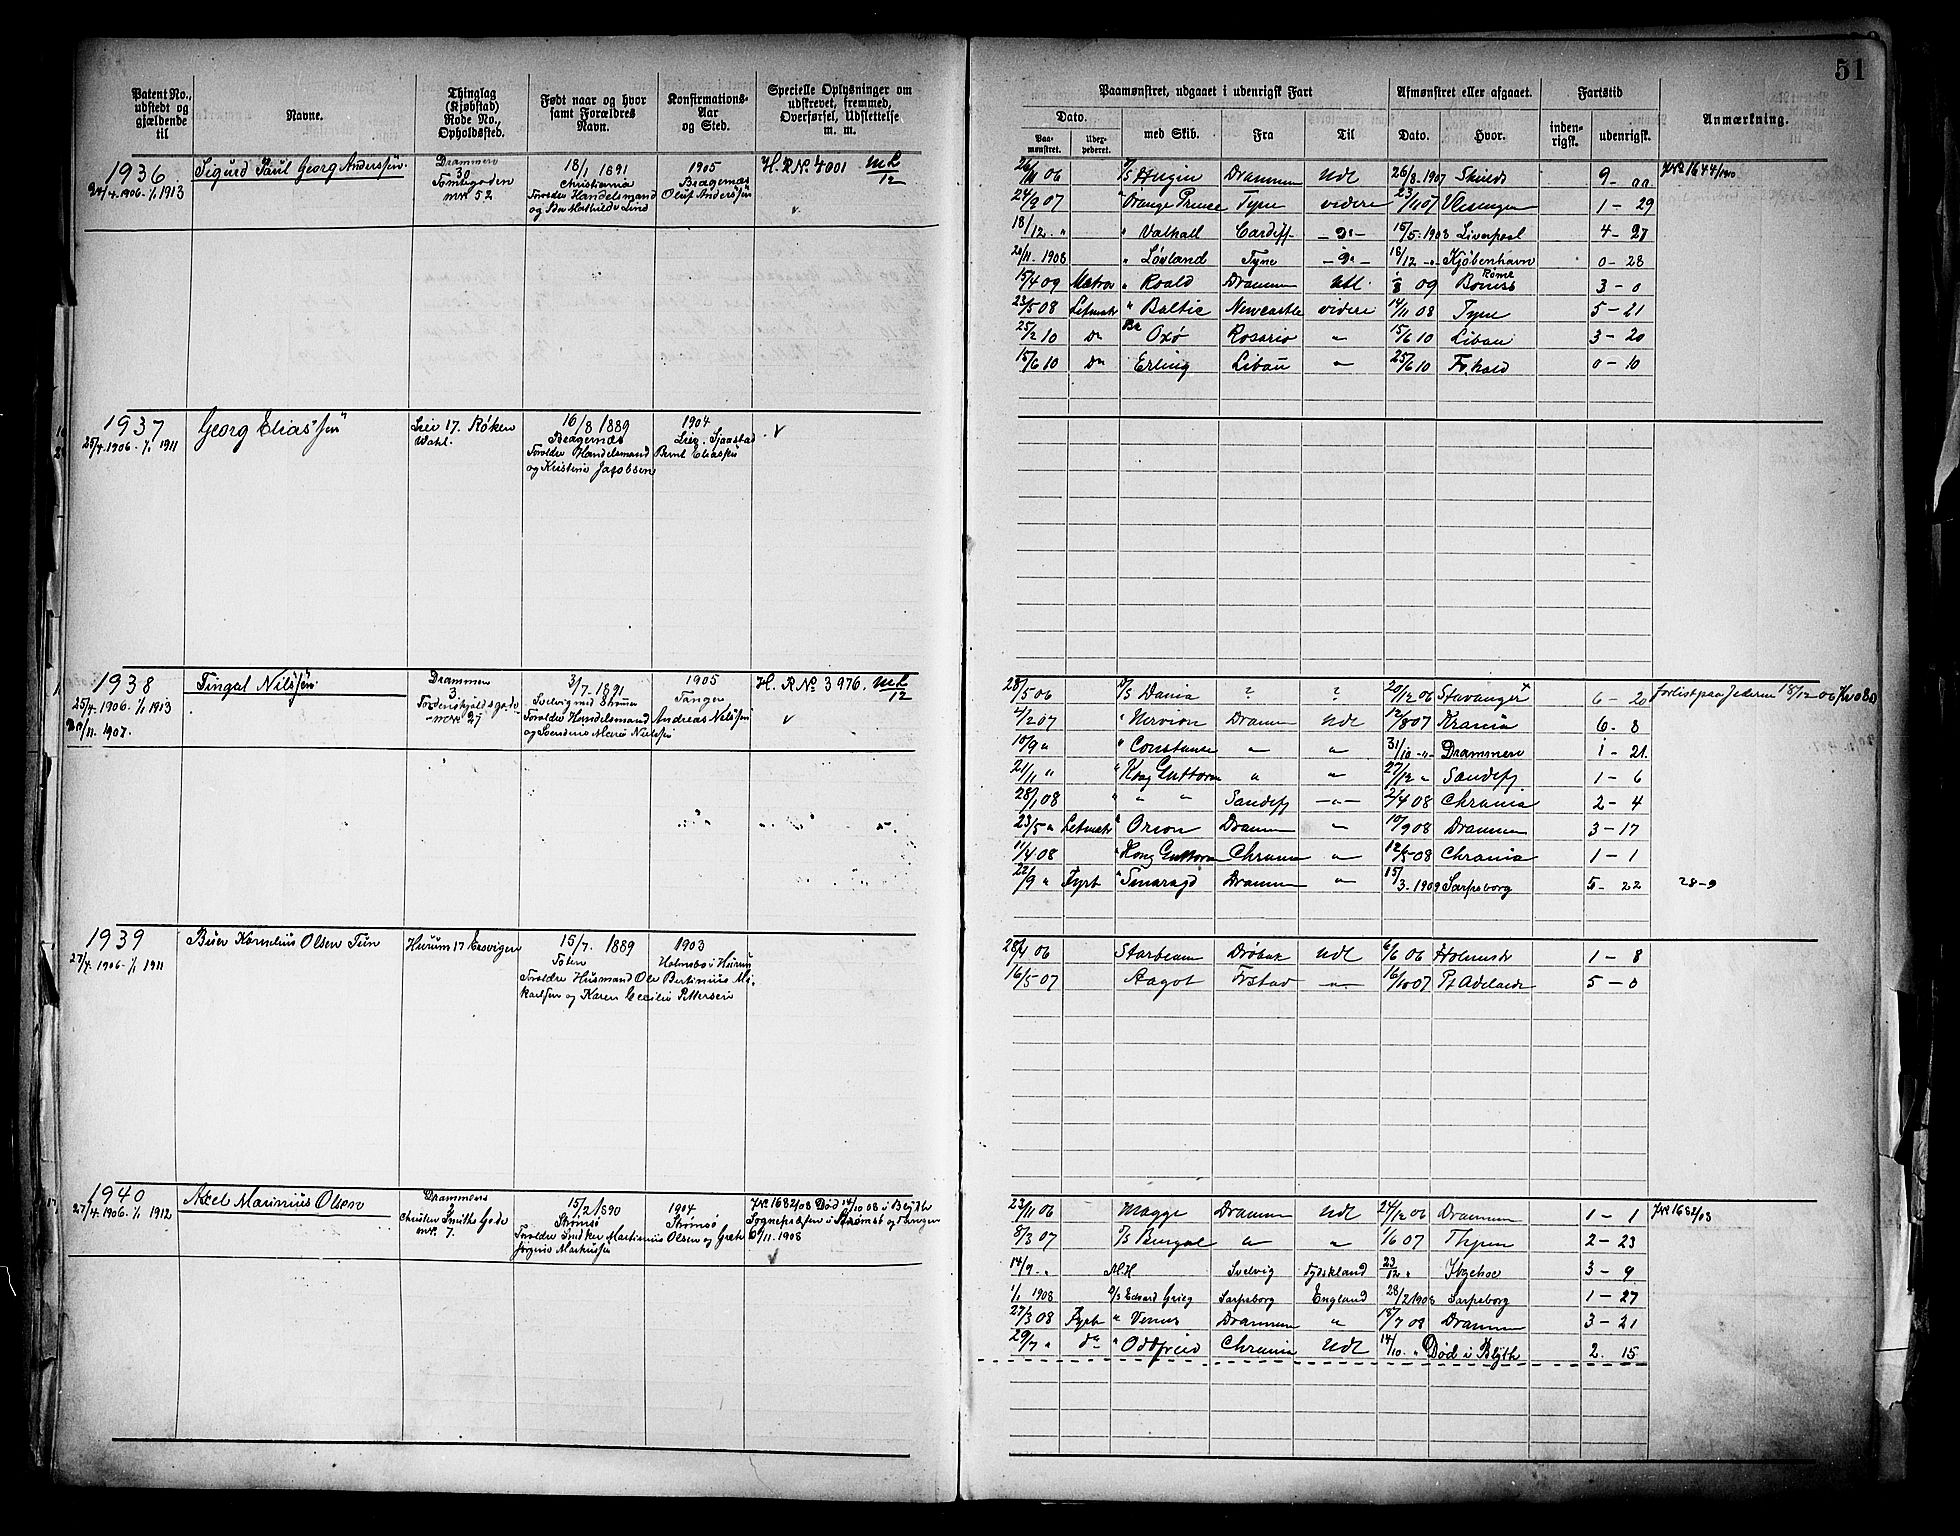 51
Patent No., udstedt og gjældende til
Navne.
Thinglag (Kjøbstad) Rode No., Opholdssted.
Født naar og hvor samt Forældres Navn.
Konfirmations- Aar og Sted.
Specielle Oplysninger om udskrevet, fremmed, Overførsel, Udslettelse m. m.
Paamønstret, udgaaet i udenrigsk Fart
Afmønstret eller afgaaet.
Fartstid
Anmærkning.
Dato.
Paa- mønstret.
med Skib.
Fra
Til
Dato.
Hvor.
inden- rigsk.
udenrigsk.
1936
24/4. 1906 - 1/1 1913
Sigurd Paul Georg Anderssen
Drammen
30
Tomtegaden
nr 52
18/1 1891
Christiania
Forældre Handelsmand Oluf Anderssen
og Mathilde Lind
1905
Bragernæs
H. R No 4001
12
06 D/S Hugin Drammen Udl 26/8. 1907 9
Jr No 1644/1910
24/9 07 " Orange Prince Tyne videre 23/11 07 Vlissingen 1 - 29
18/12 " " Valhall Cardiff 15/5. 1908 Liverpool 4 - 27
20/11. 1908 " Løvland Tyne 18/12 Kjøbenhavn 0 - 28
15/4 09 Matros " Roald Drammen Udl 09 3 - 0
23/5 08 Letmatr " Baltic Newcastle videre 14/11 08 Tyne 5 - 21
25/2 10 Do Oxø Rosario " 15/6 10 Libau 3 - 20
15/6 10 Do Erling Libau " 25/6 10 Fr.hald 0 - 10
1937
25/4. 1906 - 1/1 1911
Georg Eliassen
Lier 17. Røken
Wahl.
16/8 1889
Bragernæs
Forældre Handelsmand Bernt Eliassen
og Kristine Jacobsen
1904
Lier. Sjaastad
1938
25/4. 1906 - 1/1 1913
20/11. 1907.
Tingal Nilssen
Drammen
3.
Tordenskjoldsgade
nr 27
3/7. 1891
Svelvig
Forældre Handelsmand Andreas Nilssen
og Marie Nilssen
1905
Tangen
H. R No 3976.
12
28/5 06 D/S Dania ? ? 20/12 06 Stavanger 6 - 20
Forlist paa Jæderen 18/12 06
2/2 07 " Nervion Drammen Udl 12/8 07 Krania 6 - 8
10/9 " " Constance " " 31/10 Drammen 1 - 21
21/11 " " Kong Guttorm " " 27/12 " Sandefj 1 - 6
28/1 08 " " " Sandefj 2/4 08 Chrania 2 - 4
23/5 " Letmatr " Orion Drammen " 10/9 08 Drammen 3 - 17
11/4 08 " Kong Guttorm Chrania " 12/5 08 Chrania 1 - 1
22/9 " Fyrb " Smaragd Drammen " 15/3. 1909 Sarpsborg 5 - 22
28 - 9
1939
27/4. 1906 - 1/1 1911
Kornelius Olsen
Hurum 17
15/7. 1889
Forældre Husmand Ole Bertinius
Karlsen og Karen Cecilie Pettersen
1903
Holmsbo i Hurum
28/4 06 Starbeam Drøbak Udl 6/6 06 1 - 8
16/5 07 Aagot Frstad 16/10 07 Pt Adelaide 5 - 0
1940
27/4. 1906 - 1/1 1912
Axel Marinius Olsen
Drammen
2
Christen Smiths Gade
nr. 7.
15/2 1890
Strømsø
Forældre Martinius Olsen og
Markussen
1904
Strømsø
Jr No 1682/08 Død 14/10 08 i Blyth
Strømsø og Tangen
6/11. 1908
23/11 06 Magge Drammen Udl 24/12 06 Drammen 1 - 1
Jr No 1682/08
8/3 07 D/S Bengal " " 1/6 07 2 - 23
14/9 " M.H Svelvig Tydskland 23/12 " Itzehoe 3 - 9
1/1 1908 D/S Edvard Grieg Sarpsborg England 28/2 1908 Sarpsborg 1 - 27
27/3 08 Fyrb " Venus Drammen " 18/7 08 Drammen 3 - 21
29/7 " do " Oddfreid Chrania Udl 14/10 " Død i Blyth 2. 15